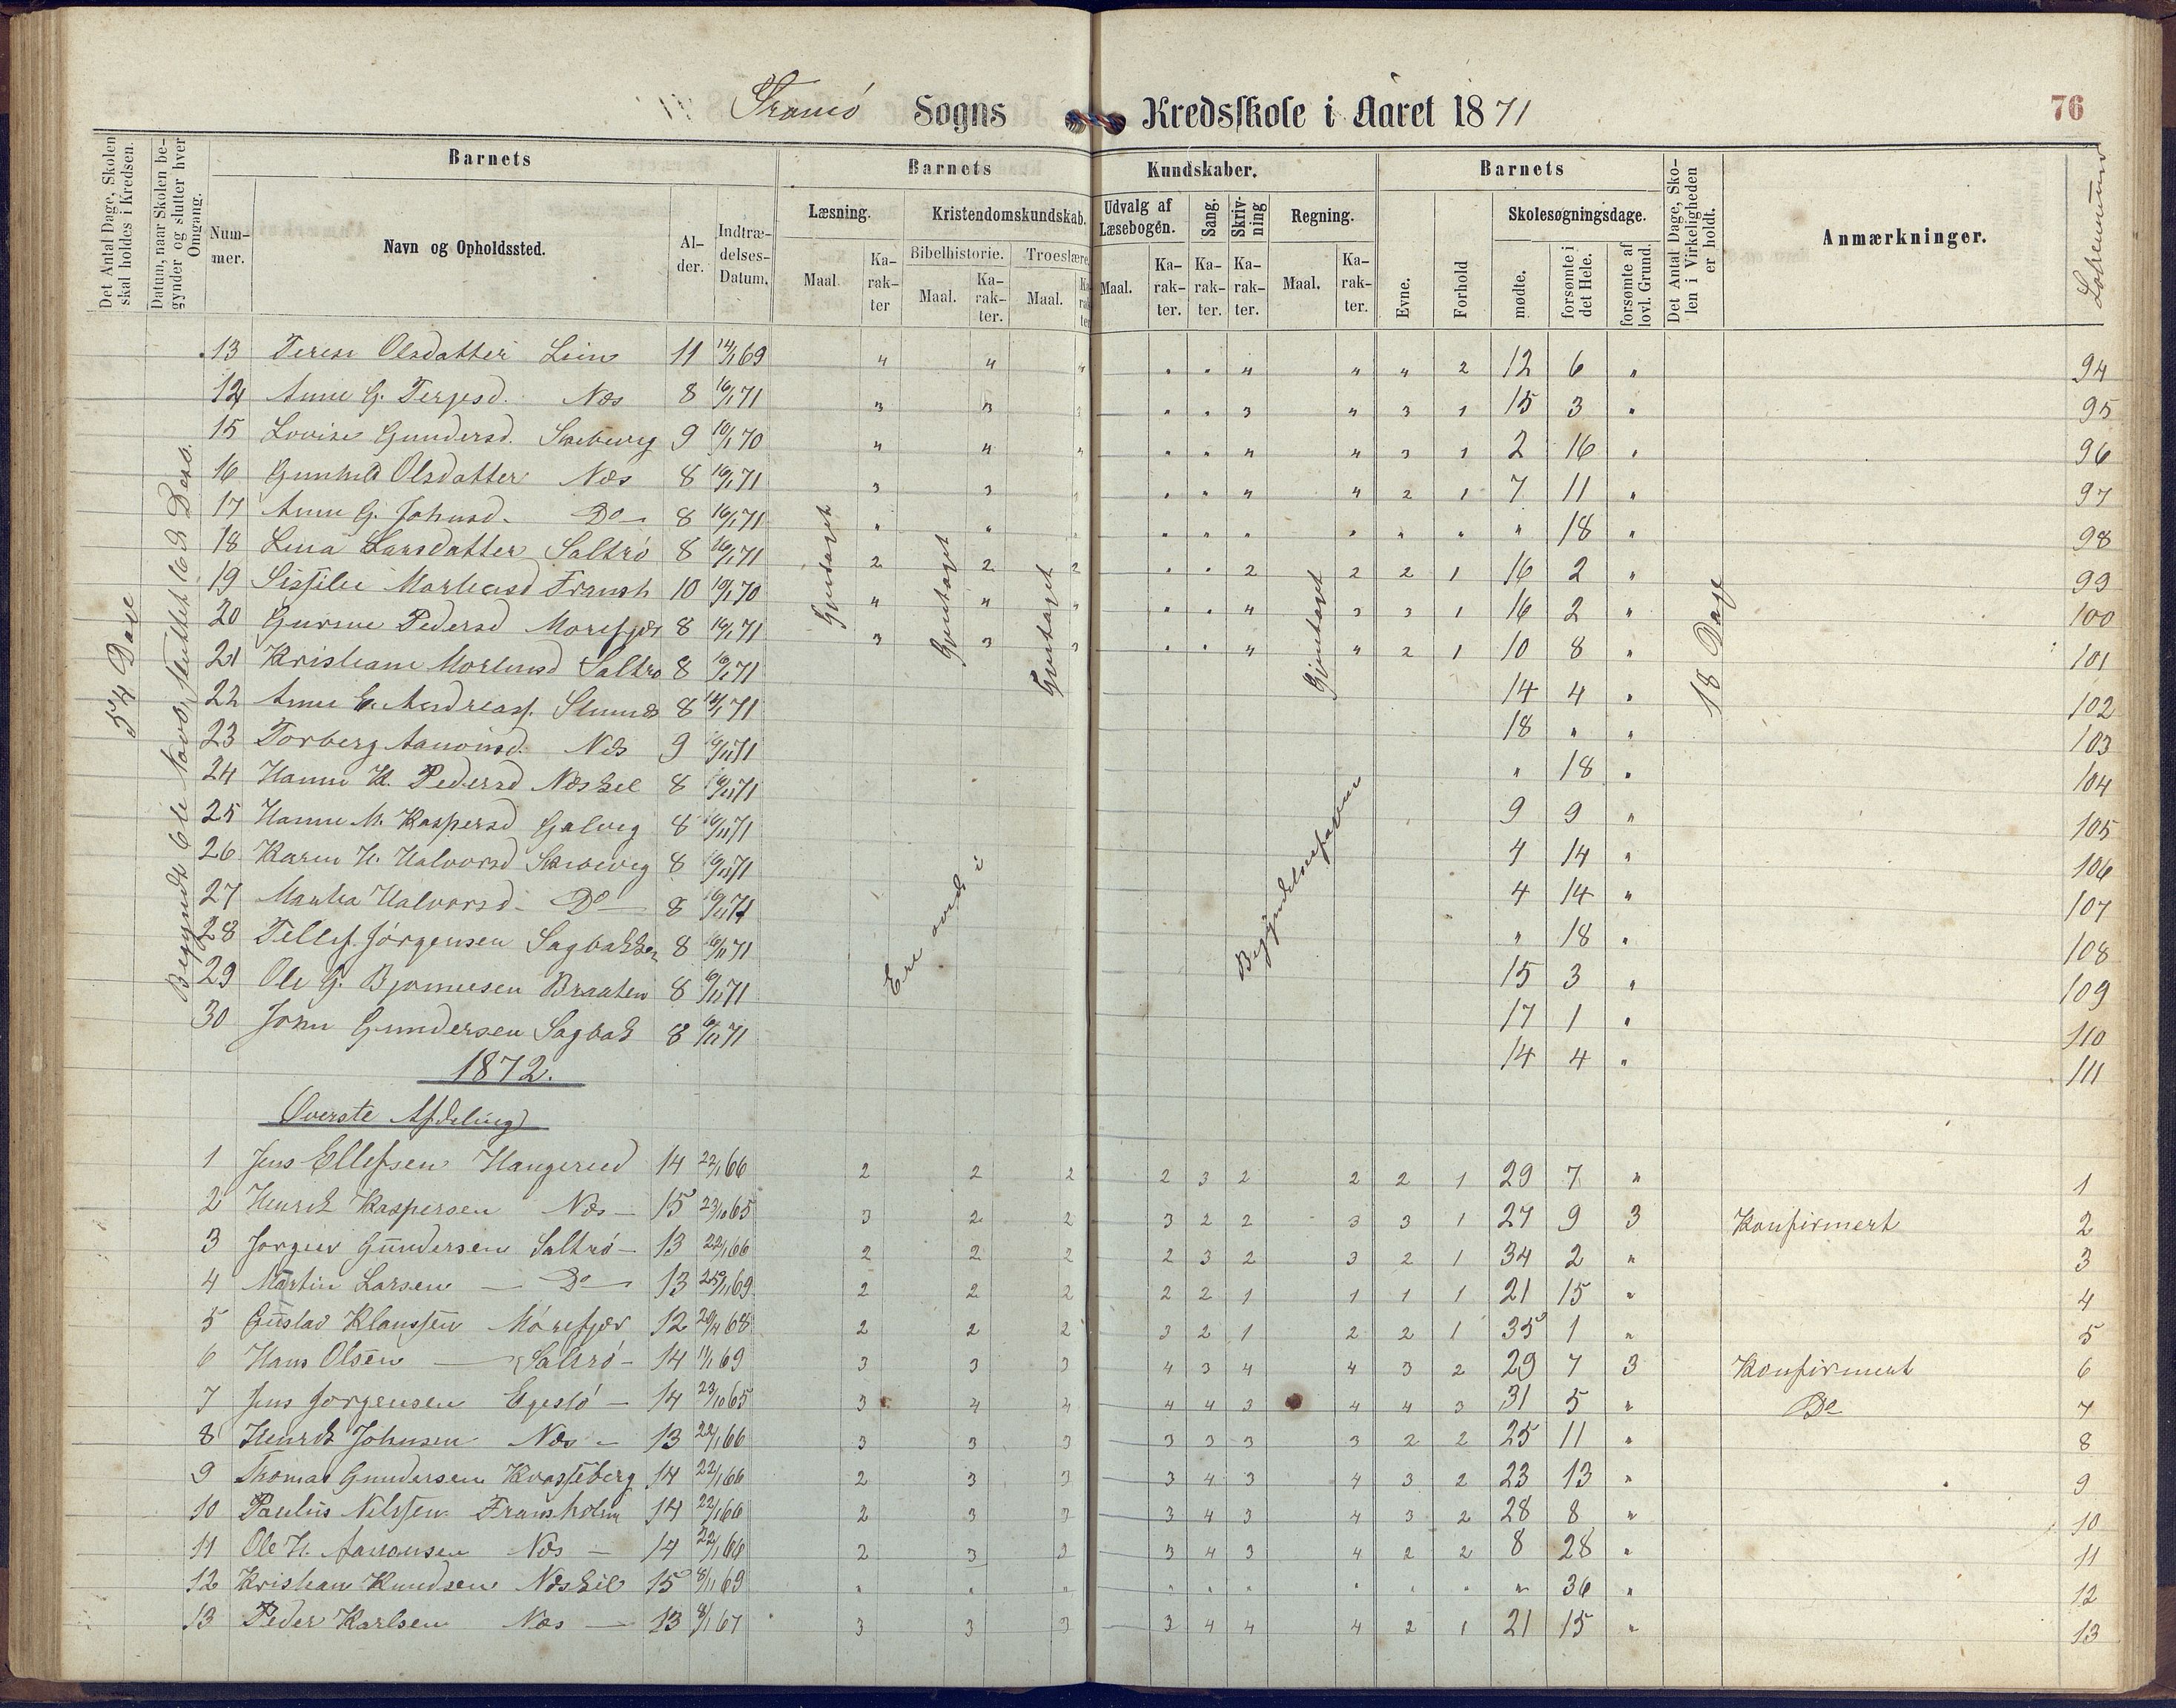 Tromö Sogns Kredsskole i Aaret 1871
76
Det Antal Dage, Skolen skal holdes i Kredsen.
Datum, naar Skolen begynder og slutter hver Omgang.
Barnets
Nummer.
Navn og Opholdssted.
Alder.
Indtrædelses-Datum.
Barnets Kundskaber.
Læsning.
Maal.
Karakter
Kristendomskundskab.
Bibelhistorie.
Maal.
Karakter.
Troeslære.
Maal.
Karakter
Udvalg af Læsebogen.
Maal.
Karakter.
Sang.
Karakter.
Skrivning
Karakter.
Regning.
Maal.
Karakter.
Barnets
Evne.
Forhold
Skolesøgningsdage.
mødte.
forsømte i det Hele.
forsømte af lovl. Grund.
Det Antal Dage, Skolen i Virkeligheden er holdt.
Anmærkninger.
Løbenummer
54 Dage
Begyndt 6te Novbr, sluttet 16d Decb.
Gjentaget
Gjentaget
Gjentaget
Gjentaget
18 Dage
Ere øvede i
Begyndelses
13 Terese Olsdatter 11 14/1 69 " " " " " " " " 2 12 6 " 94
14 Anne G. Terjesd. Næs 8 16/1 71 3 3 3 " " 3 " 3 1 15 3 " 95
15 Lovise Gundersd. 9 10/1 70 " " " " " " " 3 1 2 16 " 96
16 Gunhild Olsdatter Næs 8 16/1 71 3 3 3 " " " " 2 1 7 11 " 97
17 Anne G. Johnsd. Do 8 16/1 71 " " " " " " " " " " 18 " 98
18 Lina Larsdatter Saltrö 8 16/1 71 2 2 2 " " 2 2 2 1 16 2 " 99
19 10 10/1 70 " " " " " " 3 3 1 16 2 " 100
20 Gurine Pedersd Morefjær 8 16/1 71 3 3 3 " " " " 2 1 10 8 " 101
21 Kristiane Saltrö 8 71 14 4 " 102
22 Anne 8 71 18 " " 103
23 Torberg Aanonsd. Næs 9 6/11 71 " 18 " 104
24 Hanne K. Pedersd Næskil 8 6/11 71 9 9 " 105
25 Hanne M. Kaspersd Galvig 8 6/11 71 4 14 " 106
26 Karen H. Halvorsd 8 6/11 71 4 14 " 107
27 Martha Halvorsd Do 8 6/11 71 " 18 " 108
28 Tellef Jörgensen Sagbakken 8 6/11 71 15 3 " 109
29 Ole G. Bjørnnesen Braaten 8 6/11 71 17 1 " 110
30 John Gundersen Sagbak 8 6/11 71 14 4 " 111
1872.
Överste Afdeling
1 Jens Ellefsen Haugerud 14 22/1 66 2 2 2 2 3 2 2 2 1 29 7 " 1
2 Henrik Kaspersen Næs 15 23/10 65 3 2 2 3 2 2 3 3 1 27 9 3 Konfirmert 2
3 Jorgen Gundersen Saltrö 13 22/1 66 2 2 2 2 3 2 3 2 1 34 2 " 3
4 Martin Larsen Do 13 25/1 69 2 2 2 2 2 1 1 1 1 21 15 " 4
5 Gustav Klaussen Mörefjær 12 20/4 68 2 2 2 3 2 1 2 2 1 35 1 " 5
6 Hans Olsen Saltrö 14 11/1 69 3 3 3 4 3 4 4 3 2 29 7 3 Konfirmert 6
7 Jens Jorgensen 14 23/10 65 3 4 4 4 4 3 4 4 3 31 5 " Do 7
8 Henrik Johnsen Næs 13 22/1 66 3 3 3 3 3 3 3 2 2 25 11 " 8
9 Thomas Gundersen Kvasseberg 14 22/1 66 2 3 3 3 4 3 4 3 2 23 13 " 9
10 Paulus Nilssen Fransholm 14 22/1 66 2 3 3 3 4 3 4 3 2 28 8 " 10
11 Ole H. Aanonsen Næs 14 22/1 66 2 3 3 3 4 3 4 2 2 8 28 " 11
12 Kristian Knudsen Næskil 15 8/11 69 " " " " " " " " " " 36 " 12
13 Peder Karlsen Næs 13 8/1 67 3 3 3 3 4 4 4 2 1 21 15 " 13